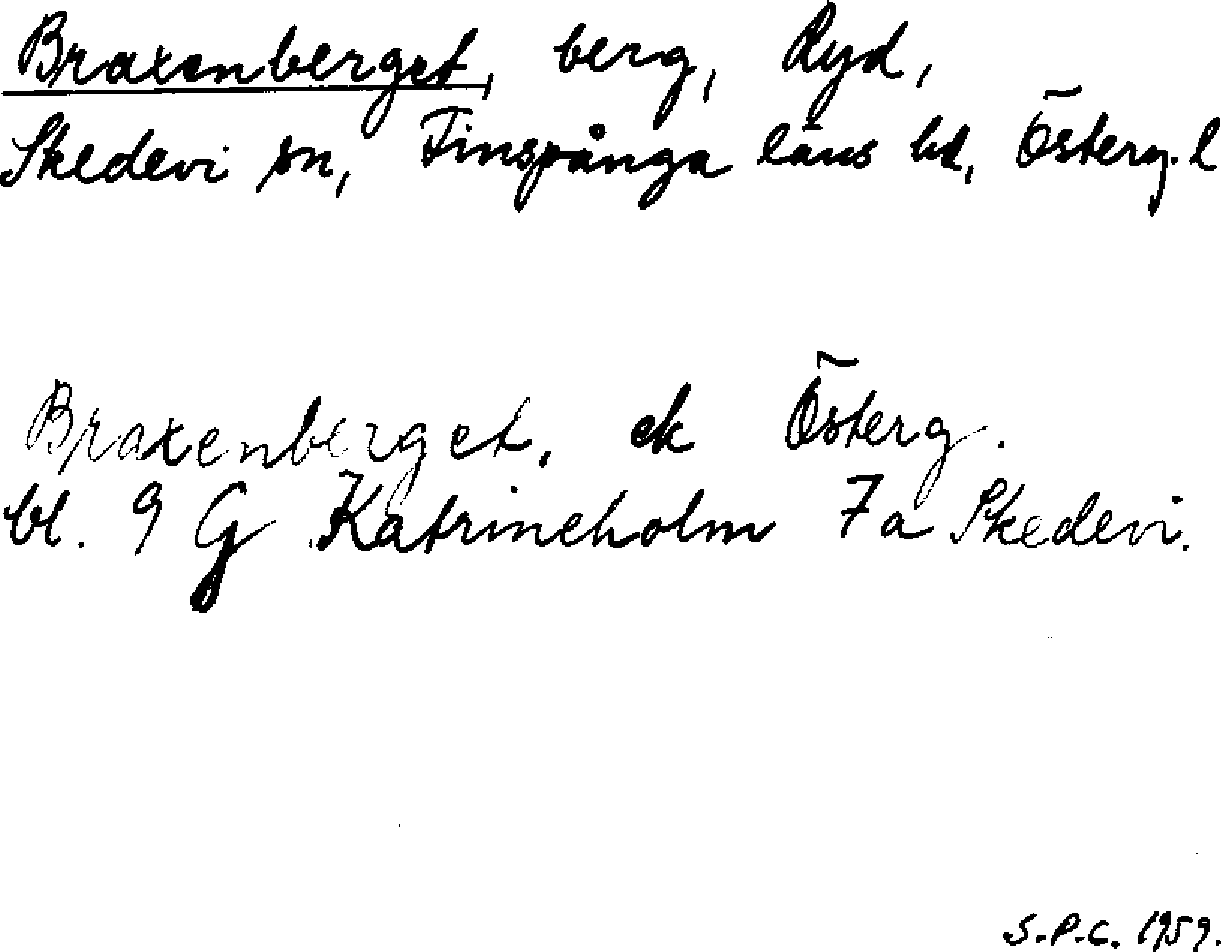 Braxenberget, berg, Ryd,
Skedevi sn, Finspånga läns hd, Österg. l
Braxenberget, ek Österg.
bl. 9 G Katrineholm 7a Skedevi.
S.P.C. 1959.